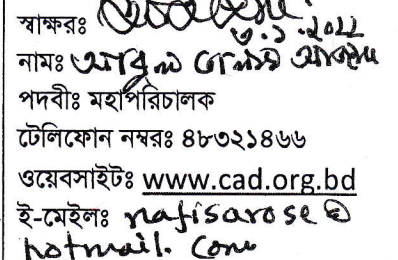 স্বাক্ষরঃ
৩.১.২০২২
নামঃ আবুল আজাদ
পদবীঃ মহাপরিচালক
টেলিফোন নম্বরঃ ৪৮৩২১৪৬৬
ওয়েবসাইটঃ www.cad.org.bd
ই-মেইলঃ nafisarose@
hotmail.com